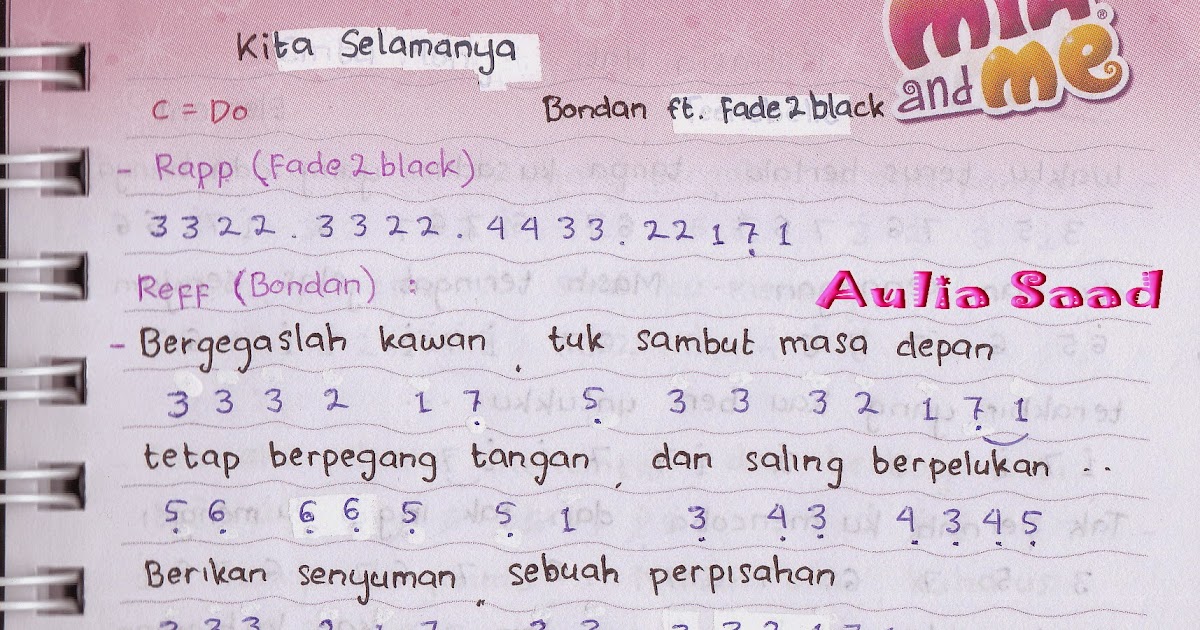 Kita Selamanya
MIA and Me ®
C = Do
Bondan ft. Fade2black
- Rapp (Fade2black)
3 3 2 2 . 3 3 2 2 . 4 4 3 3 . 2 2 1 7̣ 1
Reff (Bondan) :
Aulia Saad
- Bergegaslah kawan, tuk sambut masa depan
3 3 3 2 1 7̣ 5̣ 3 3 3 2 1 7̣ 1
tetap berpegang tangan, dan saling berpelukan ..
5̣ 6̣ 6̣ 6̣ 5̣ 5̣ 1 3̣ 4̣ 3̣ 4̣ 3̣ 4̣ 5̣
Berikan senyuman, sebuah perpisahan